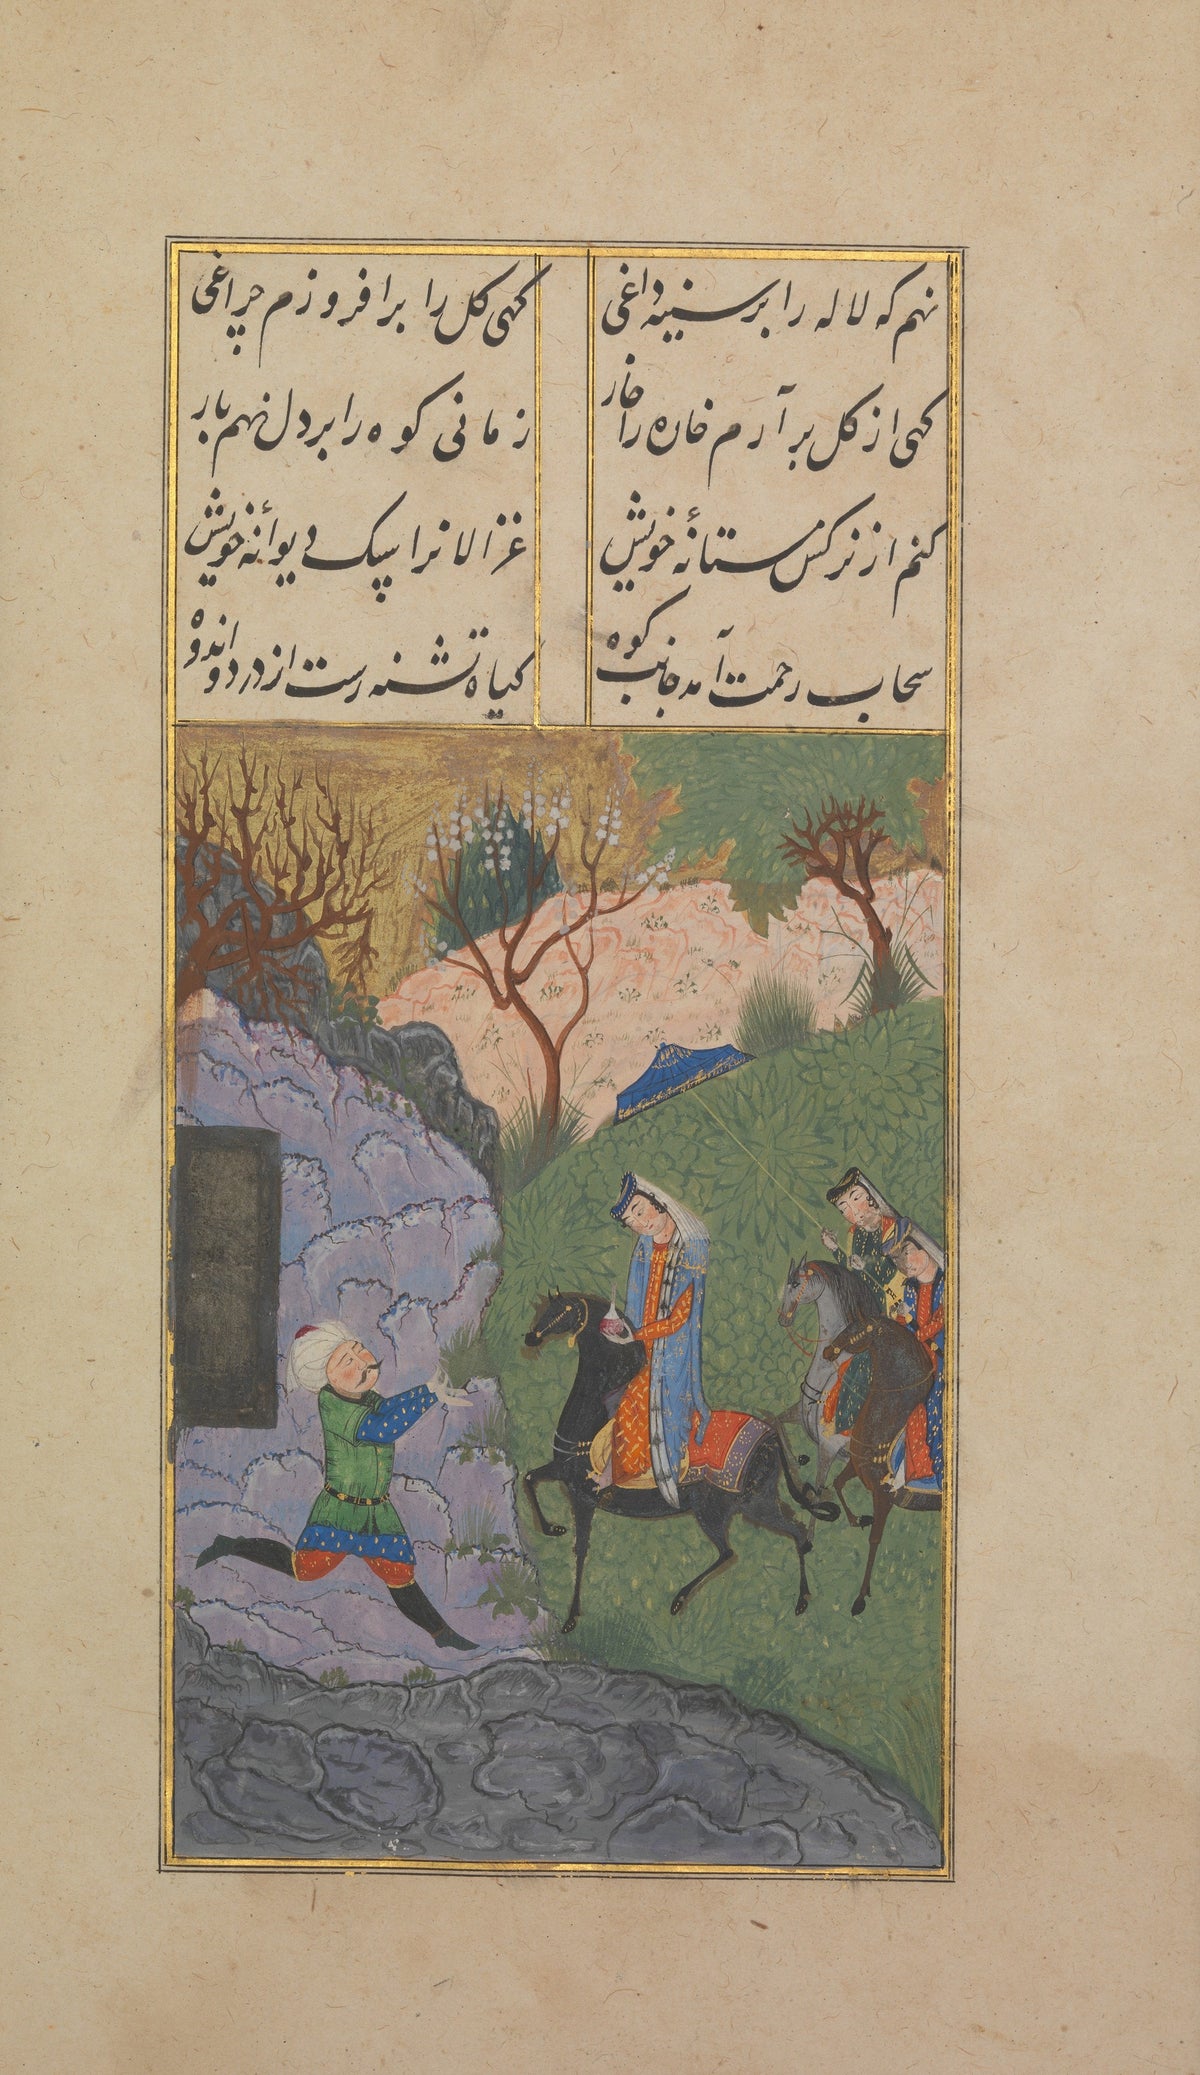 نهم که لاله را بر سینه داغی
کهی کل را برافروزم چراغی
کهی از کل برآرم خاره را خار
زمانی کوه را بر دل نهم بار
کنم از نرکس مستانهٔ خویش
غزالانرا سک دیوانهٔ خویش
سحاب رحمت آمد جانب کوه
کیاه تشنه رست از درد و اندوه